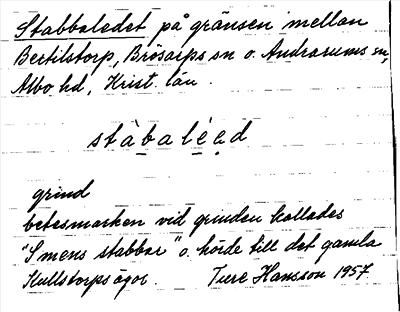 Stabbaledet på gränsen mellan
Bertilstorp, Brösarps sn o. Andrarums sn,
Albo hd, Krist. län.
stàbaléed
grind
betesmarken vid grinden kallades
"Smens stabbar" o. hörde till det gamla
Kullstorpsägor. Ture Hansson 1957.